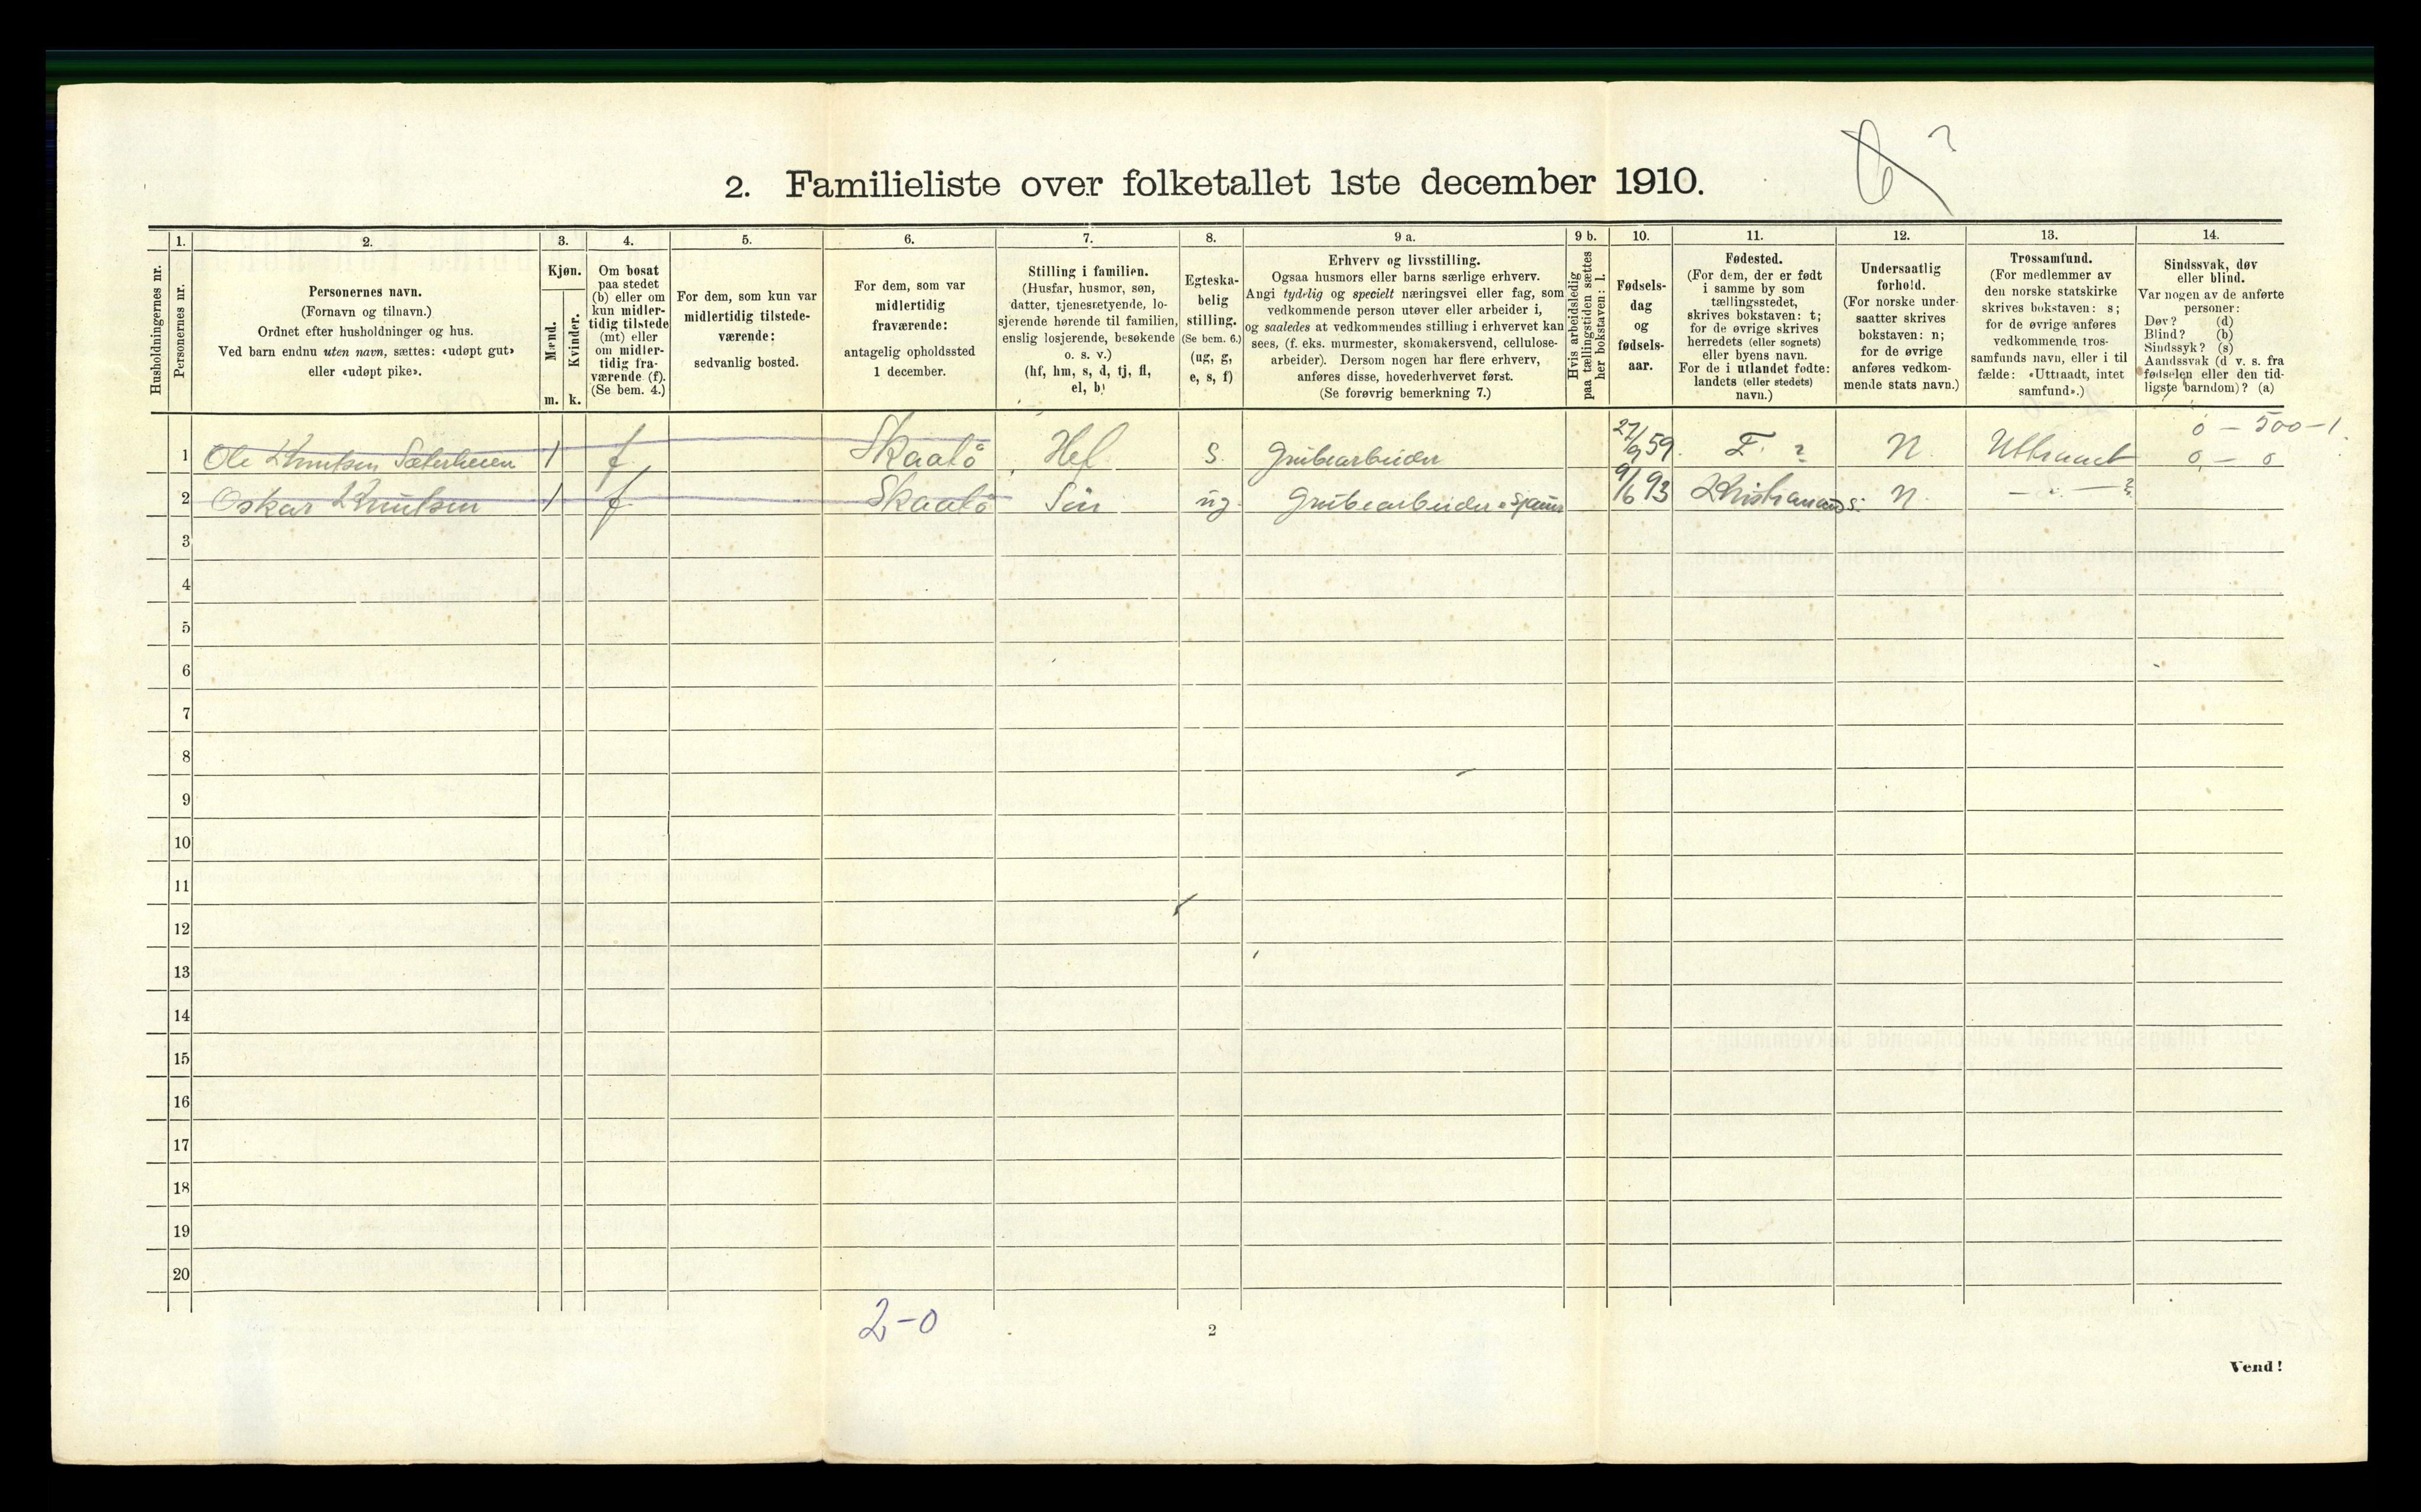 6 ?
2. Familieliste over folketallet 1ste december 1910.
1. 2. 3. 4. 5. 6. 7. 8. 9 a. 9 b. 10. 11. 12. 13. 14.
Husholdningernes nr.
Personernes nr.
Personernes navn.
(Fornavn og tilnavn.)
Ordnet efter husholdninger og hus.
Ved barn endnu uten navn, sættes: «udøpt gut»
eller «udøpt pike».
Kjøn.
Mænd.
Kvinder.
m. k.
Om bosat
paa stedet
(b) eller om
kun midler-
tidig tilstede
(mt) eller
om midler-
tidig fra-
værende (f).
(Se bem. 4.)
For dem, som kun var
midlertidig tilstede-
værende:
sedvanlig bosted.
For dem, som var
midlertidig
fraværende:
antagelig opholdssted
1 december.
Stilling i familien.
(Husfar, husmor, søn,
datter, tjenestetyende, lo-
sjerende hørende til familien,
enslig losjerende, besøkende
o. s. v.)
(hf, hm, s, d, tj, fl,
el, b)
Egteska-
belig
stilling.
(Se bem. 6.)
(ug, g,
e, s, f)
Erhverv og livsstilling.
Ogsaa husmors eller barns særlige erhverv.
Angi tydelig og specielt næringsvei eller fag, som
vedkommende person utøver eller arbeider i,
og saaledes at vedkommendes stilling i erhvervet kan
sees, (f. eks. murmester, skomakersvend, cellulose-
arbeider). Dersom nogen har flere erhverv,
anføres disse, hovederhvervet først.
(Se forøvrig bemerkning 7.)
Hvis arbeidsledig
paa tællingstiden sættes
her bokstaven: l.
Fødsels-
dag
og
fødsels-
aar.
Fødested.
(For dem, der er født
i samme by som
tællingsstedet,
skrives bokstaven: t;
for de øvrige skrives
herredets (eller sognets)
eller byens navn.
For de i utlandet fødte:
landets (eller stedets)
navn.)
Undersaatlig
forhold.
(For norske under-
saatter skrives
bokstaven: n;
for de øvrige
anføres vedkom-
mende stats navn.)
Trossamfund.
(For medlemmer av
den norske statskirke
skrives bokstaven: s;
for de øvrige anføres
vedkommende tros-
samfunds navn, eller i til-
fælde: «Uttraadt, intet
samfund».)
Sindssvak, døv
eller blind.
Var nogen av de anførte
personer:
Døv? (d)
Blind? (b)
Sindssyk? (s)
Aandssvak (d. v. s. fra
fødselen eller den tid-
ligste barndom)? (a)
0 - 500 - 1
1 Ole Knutsen Sæterheien 1 f Skaatö Hf S. Grubearbeider 27/9 59 F. ? N. Uttraadt 0 - 0
2 Oskar Knutsen 1 f Skaatö Sön ug Grubearbeider 9/6 93 Kristiansand S. N - " - ?
3
4
5
6
7
8
9
10
11
12
13
14
15
16
17
18
19
20
2-0
2
Vend!